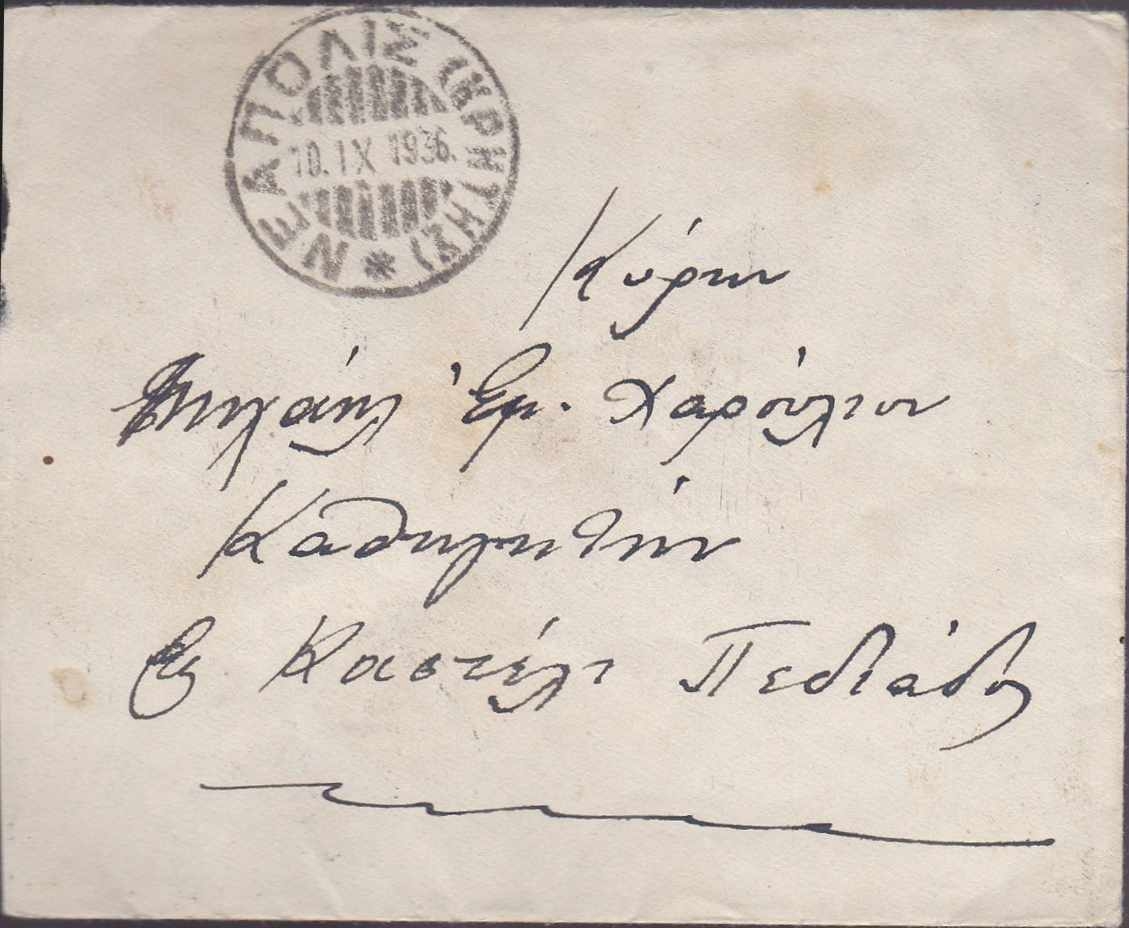 ΝΕΑΠΟΛΙΣ (ΚΡΗΤΗΣ)
10.IX 1936.
Κύριον
Μιχαήλ Ἐμ. Χαρούλιον
Καθηγητήν
Εἰς Καστέλι Πεδιάδος